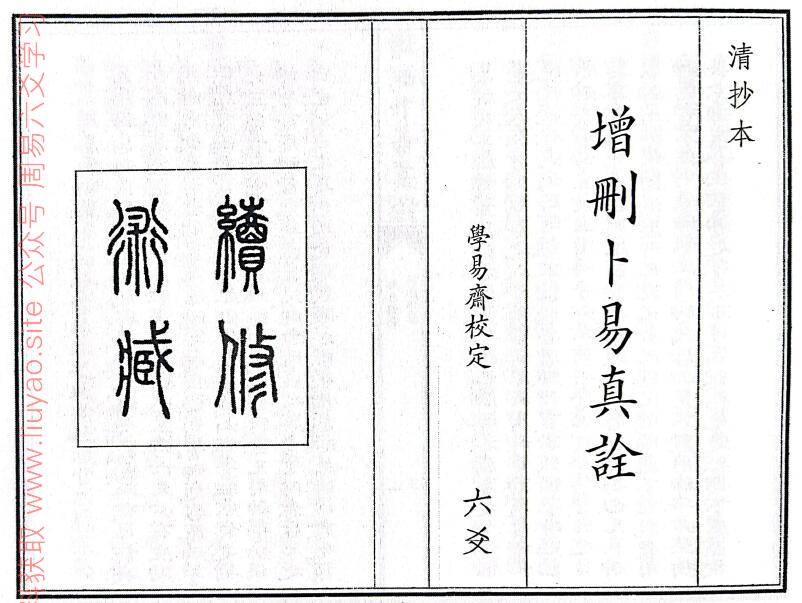 清抄本
增刪卜易真詮
學易齋校定
六爻
續修
術臧
获取 www.liuyao.site 公众号 周易六爻学习